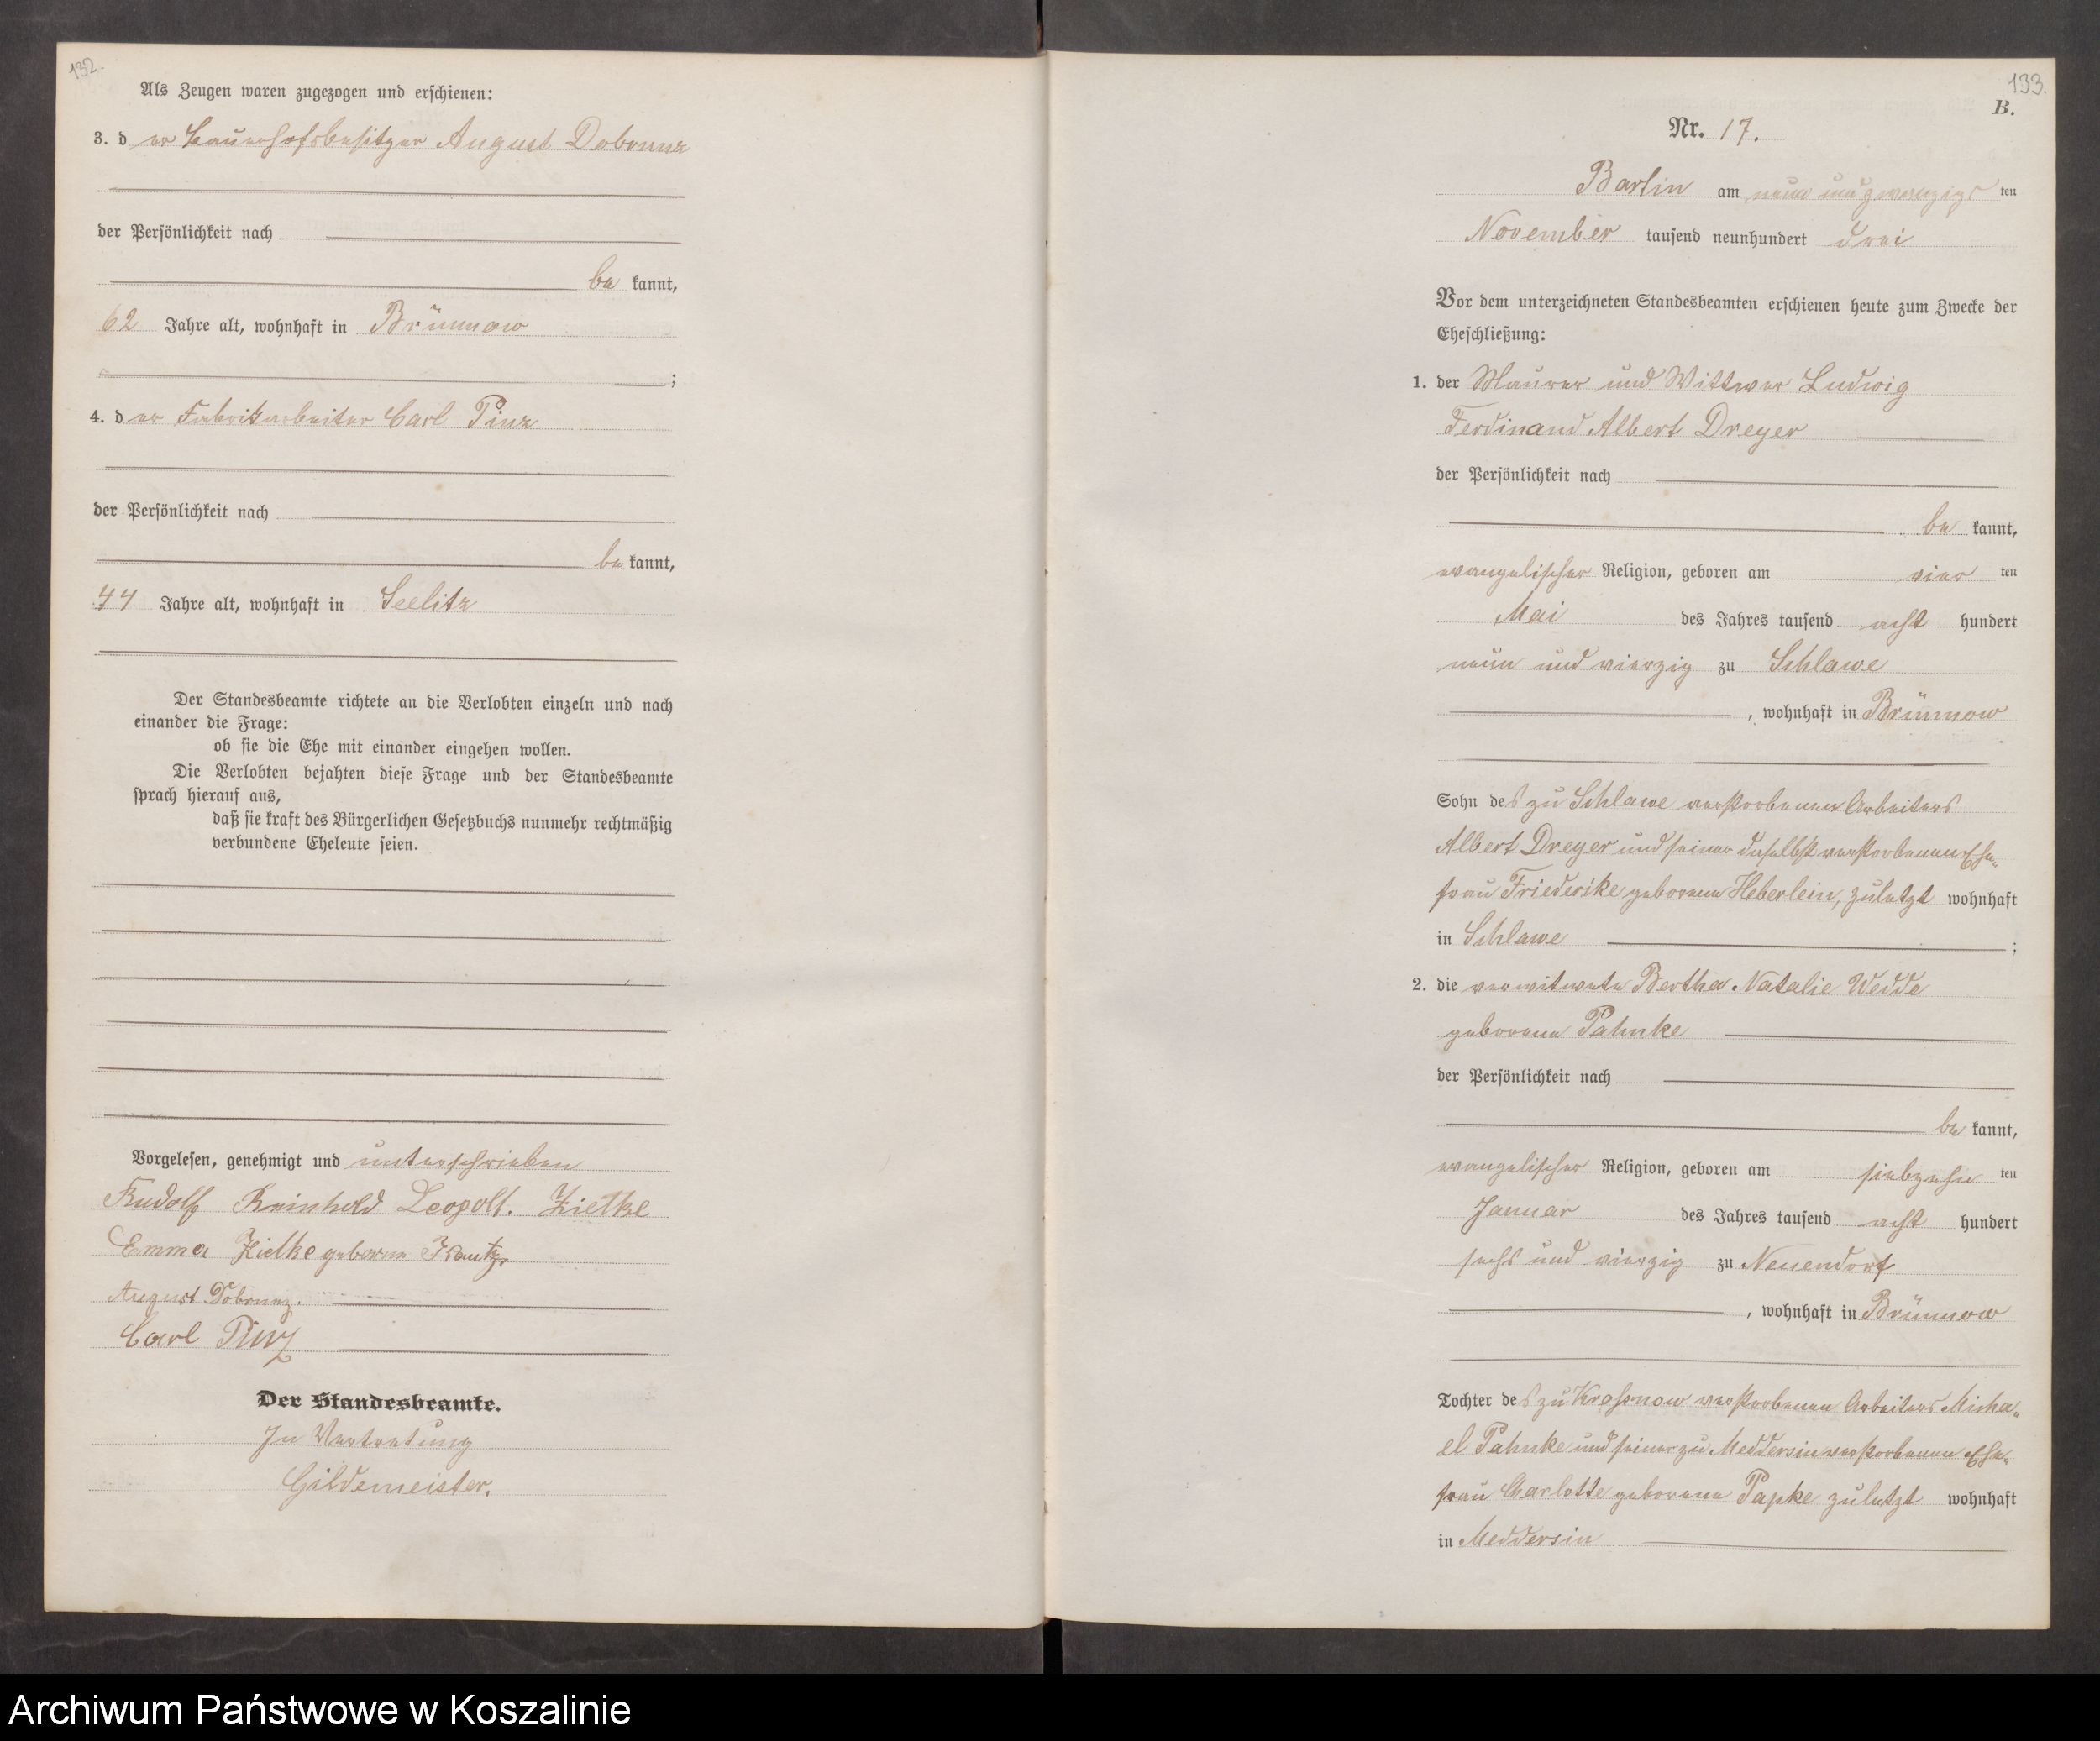 132.
Als Zeugen waren zugezogen und erschienen:
3. der Bauerhofsbesitzer August Dobrunz
der Persönlichkeit nach
be kannt,
62 Jahre alt, wohnhaft in Brünnow
;
4. der Fabrikarbeiter Carl Pinz
der Persönlichkeit nach
be kannt,
44 Jahre alt, wohnhaft in Seelitz
Der Standesbeamte richtete an die Verlobten einzeln und nach
einander die Frage:
ob sie die Ehe mit einander eingehen wollen.
Die Verlobten bejahten diese Frage und der Standesbeamte
sprach hierauf aus,
daß sie kraft des Bürgerlichen Gesetzbuchs nunmehr rechtmäßig
verbundene Eheleute seien.
Vorgelesen, genehmigt und unterschrieben
Rudolf Reinhold Leopolt. Zielke
Emma Zielke geborene
August Dobrunz.
Carl Pinz
Der Standesbeamte.
In Vertretung
Gildemeister.
133.
B.
Nr. 17.
Bartin am neun und zwanzigsten
November tausend neunhundert drei
Vor dem unterzeichneten Standesbeamten erschienen heute zum Zwecke der
Eheschließung:
1. der Maurer und Wittwer Ludwig
Ferdinand Albert Dreyer
der Persönlichkeit nach
be kannt,
evangelischer Religion, geboren am vier ten
Mai des Jahres tausend acht hundert
neun und vierzig zu Schlawe
, wohnhaft in Brünnow
Sohn des zu Schlawe verstorbenen Arbeiters
Albert Dreyer und seiner daselbst verstorbenen Ehe-
frau Friederike geborene Heberlein, zuletzt wohnhaft
in Schlawe ;
2. die verwitwete Bertha Natalie Wedde
geborene Pahnke
der Persönlichkeit nach
be kannt,
evangelischer Religion, geboren am siebzehn ten
Januar des Jahres tausend acht hundert
sechs und vierzig zu Neuendorf
, wohnhaft in Brünnow
Tochter des zu verstorbenen Arbeiters Micha-
el Pahnke und seiner zu Meddersin verstorbenen Ehe-
frau Carlotte geborene Papke zuletzt wohnhaft
in Meddersin
Archiwum Państwowe w Koszalinie